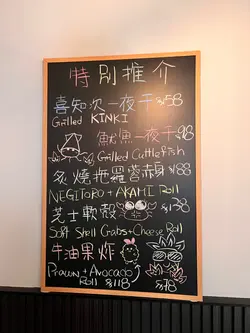 特別推介
喜知次一夜干 $158
Grilled KINKI
魷魚一夜干 $98
Grilled Cuttlefish
炙燒拖羅蓉赤身 $188
NEGITORO + AKAMI Roll
芝士軟殼 $138
Soft Shell Crabs + Cheese Roll
牛油果炸
Prawn + Avocado
Roll $118
$78